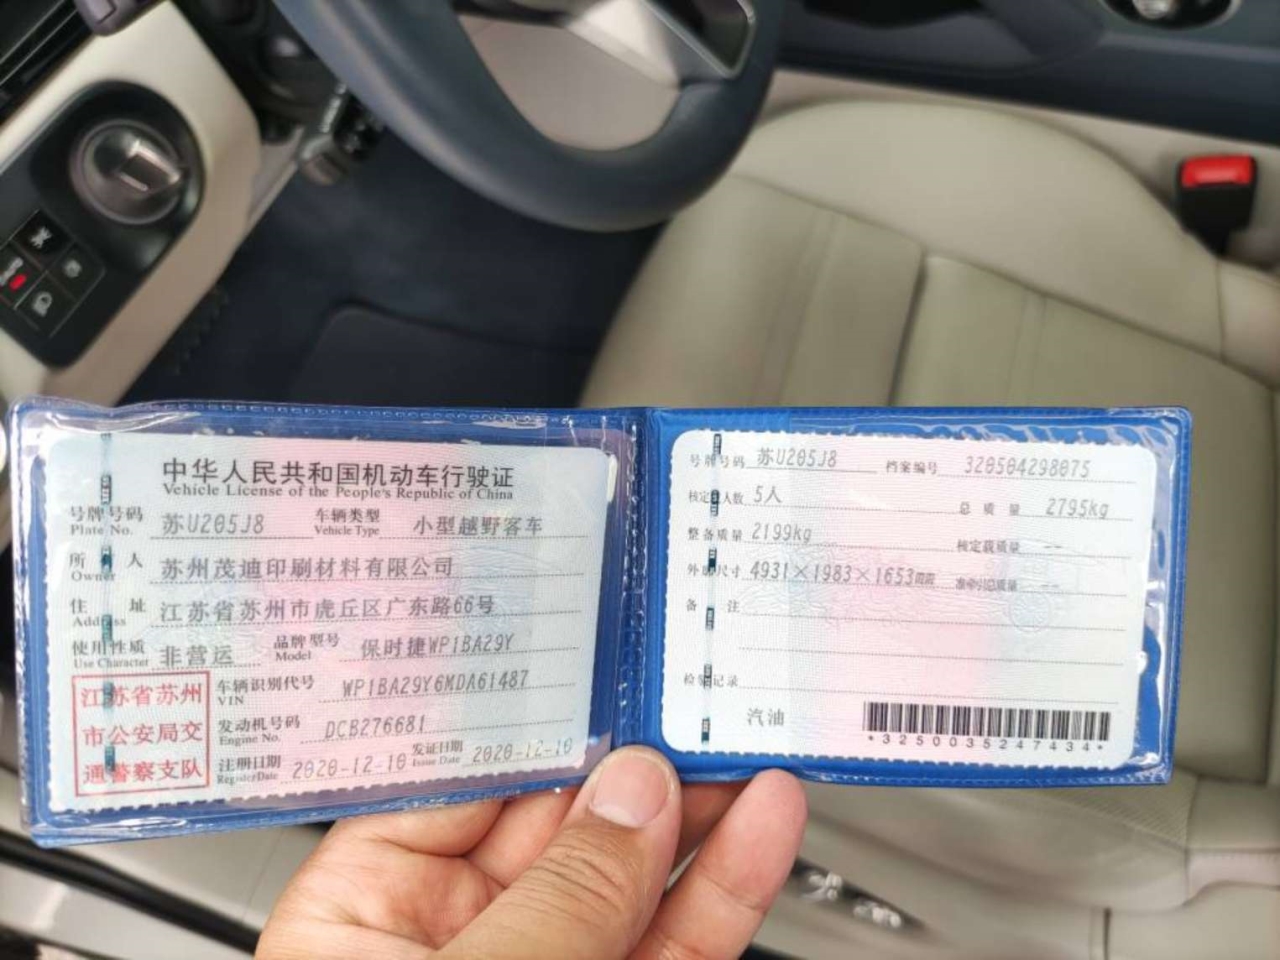 中华人民共和国机动车行驶证
Vehicle License of the People's Republic of China
号牌号码 苏U205J8 车辆类型 小型越野客车
Plate No. Vehicle Type
所 人 苏州茂迪印刷材料有限公司
Owner
住 址 江苏省苏州市虎丘区广东路66号
Address
使用性质 非营运 品牌型号 保时捷WP1BA29Y
Use Character Model
江苏省苏州
市公安局交
通警察支队
车辆识别代号 WP1BA29Y6MDA61487
VIN
发动机号码 DCB276681
Engine No.
注册日期 2020-12-10 发证日期 2020-12-10
Register Date Issue Date
号牌号码 苏U205J8 档案编号 320504298075
核定 人数 5人 总质量 2795kg
整备质量 2199kg 核定载质量 --
外 尺寸 4931×1983×1653 准牵引总质量 --
备 注
检 记录
汽油
*3250035247434*